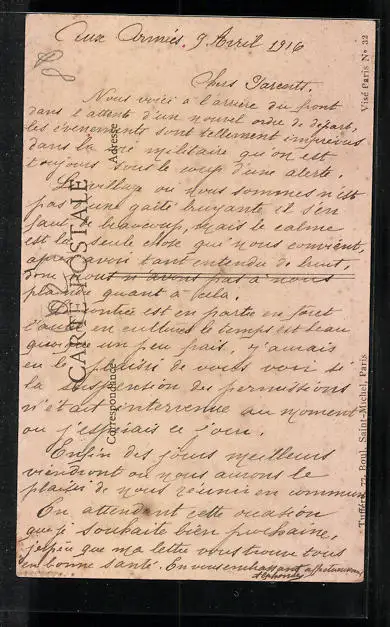 Aux Armées. 9 Avril 1916
Chers Parents.
Nous voici à l'arrière du front
dans l'attente d'un nouvel ordre de départ,
les évènements sont tellement imprévus
dans la vie militaire qu'on est
toujours sous le coup d'une alerte.
Le village où nous sommes n'est
pas d'une gaité bruyante il s'en
faut beaucoup, mais le calme
est la seule chose qui nous convient,
après avoir tant entendu de bruit,
donc nous n'avons pas à nous
plaindre quant à cela.
La contrée est en partie en forêt
l'autre en cultures le temps est beau
quoique un peu frais, j'aurais
eu le plaisir de vous voir si
la suspension des permissions
n'était intervenue au moment
ou j'espérais ce jour.
Enfin des jours meilleurs
viendront ou nous aurons le
plaisir de nous réunir en commun
En attendant cette occasion
que je souhaite bien prochaine,
j'espère que ma lettre vous trouve tous
en bonne santé. En vous embrassant affectueusement
Alphonse
CARTE POSTALE
Correspondance
Adresse
Visé Paris No 32
72, Boul. Saint-Michel, Paris